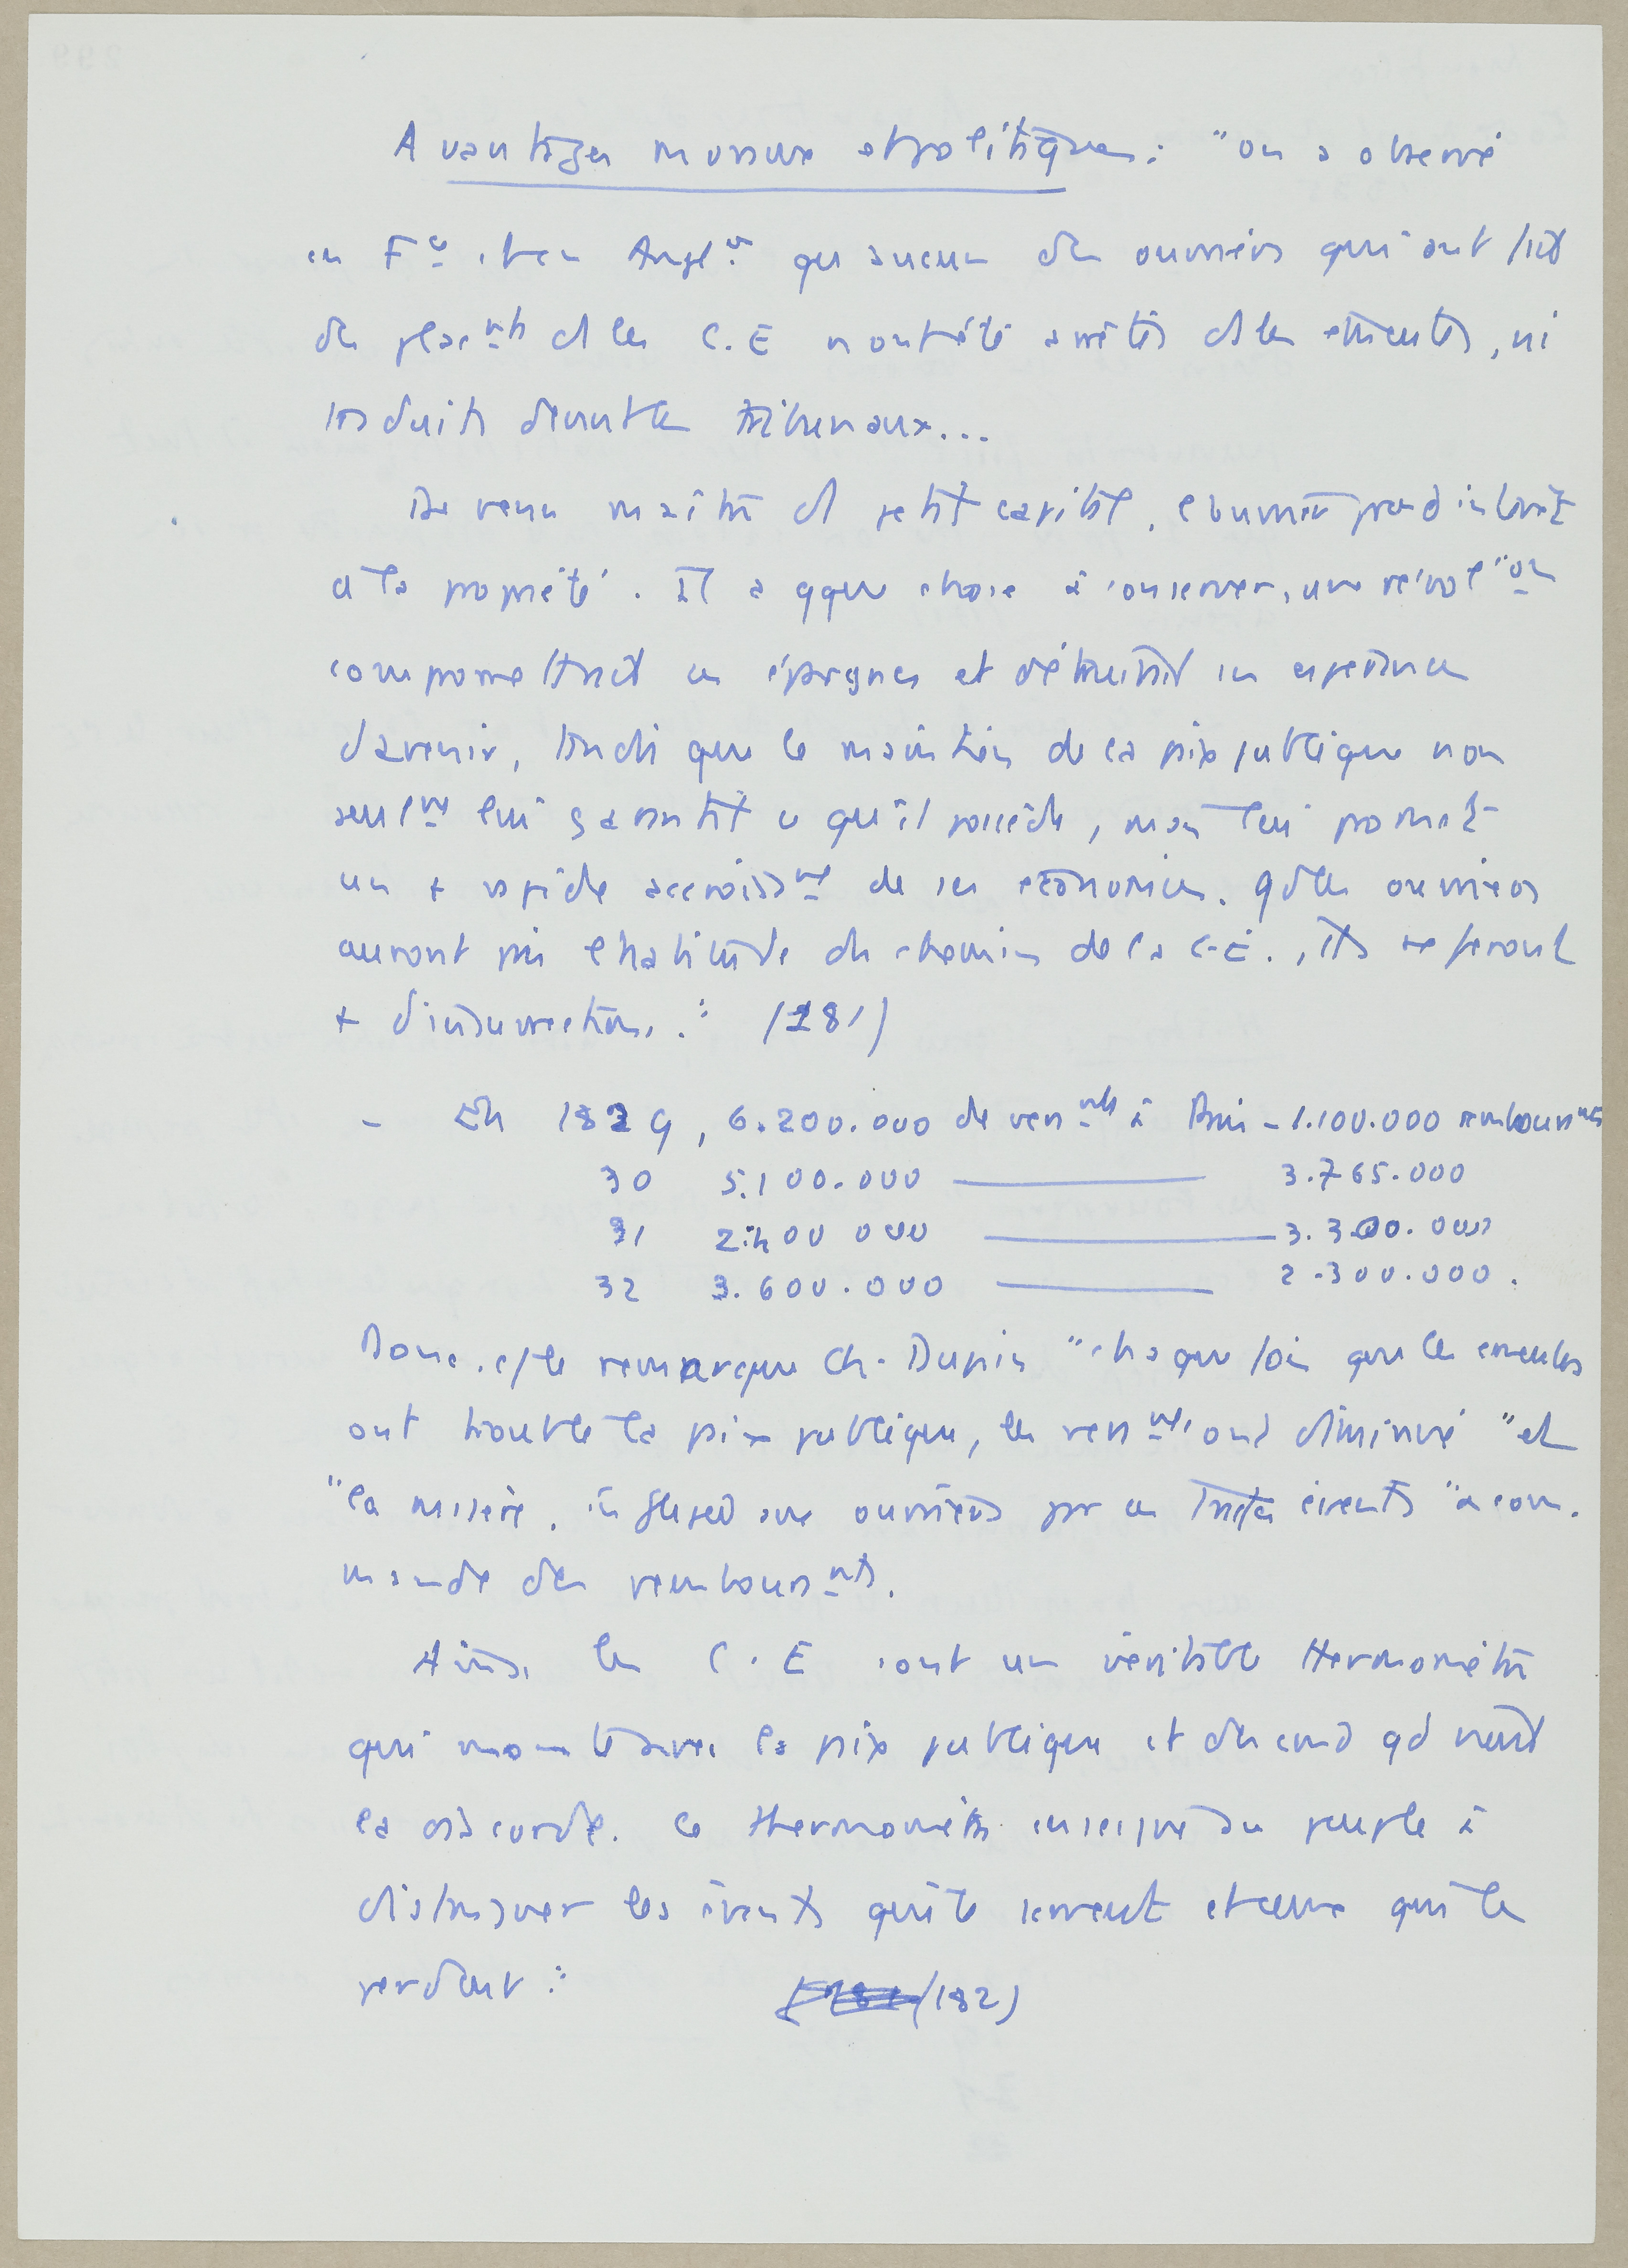 Avantages moraux et politiques : "on a observé
en Fce et en Anglre qu'aucun des ouvriers qui ont fait
des placnts ds les C.E n'ont été arrêtés ds les émeutes, ni
traduits devant les tribunaux...
Devenu maître d'1 petit capital, l'ouvrier prend intérêt
à la propriété. Il a qque chose à conserver, une révolion
compromettrait ces épargnes et détruirait ses espérances
d'avenir, tandis que le maintien de la paix publique non
seulnt lui garantit ce qu'il possède, mais lui promet
un + rapide accroissnt de ses économies. Qd les ouvriers
auront pris l'habitude du chemin de la C.E., ils ne feront
+ d'insurrections." (181)
- En 1829, 6.200.000 de versnts à Paris - 1.100.000 remboursnts
30 5.100.000 3.765.000
31 2.400 000 3.300.000
32 3.600.000 2.300.000.
Donc, remarque Ch. Dupin "chaque fois que les émeutes
ont troublé la paix publique, les versnts ont diminué" et
"la misère, infligée aux ouvriers par ces tristes événts" a com-
mandé des remboursnts.
Ainsi les C.E sont un véritable thermomètre
qui monte avec la paix publique et descend qd naît
la discorde. Ce thermomètre enseigne au peuple à
distinguer les événts qui le servent et ceux qui le
perdent." (182)